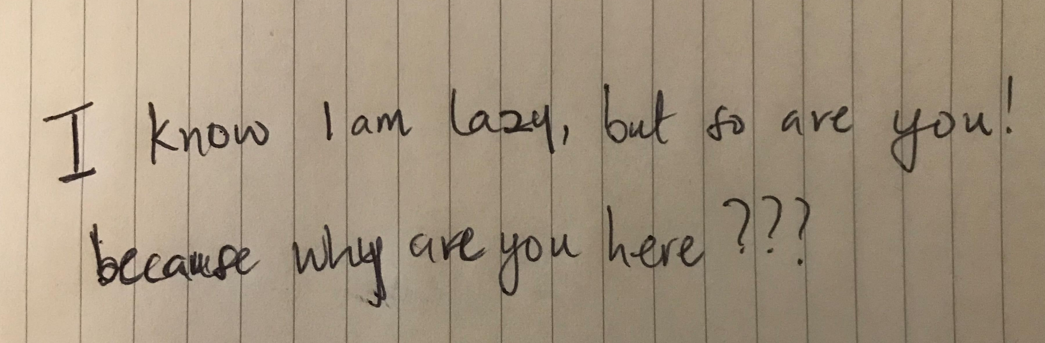 I know I am lazy, but so are you!
because why are you here ???